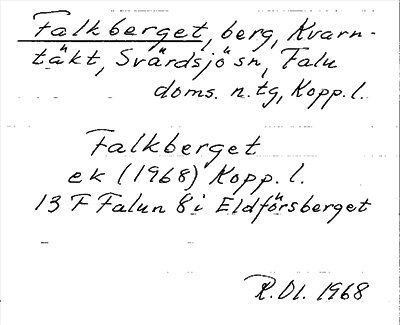 Falkberget, berg, Kvarn-
täkt, Svärdsjö sn, Falu
doms. n. tg, Kopp. l.
Falkberget
ek (1968) Kopp. l.
13 F Falun 8 i Eldförsberget
R. Dl. 1968